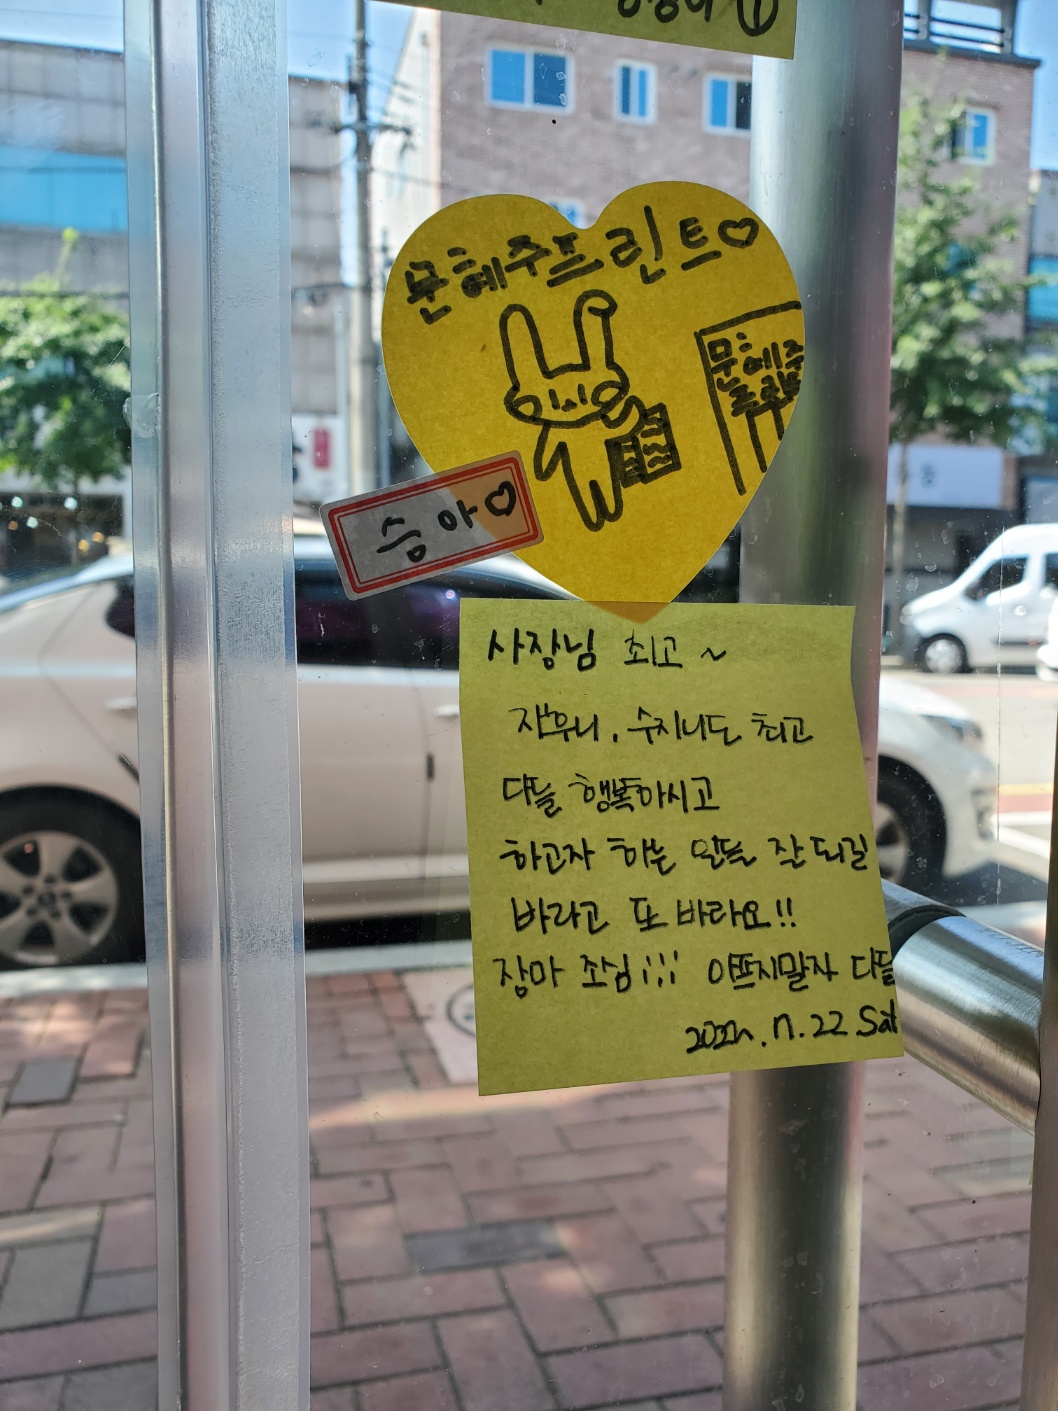 문혜주프린트♡
문혜주
프린트
승아♡
사장님 최고 ~
수지니도 최고
다들 행복하시고
하고자 하는 일들 잘 되길
바라고 또 바라요!!
장마 조심;;; 아프지말자 다들
22 Sat